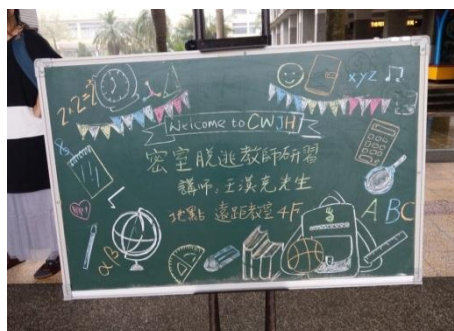 2+2=?
xyz
Welcome to CWJH
密室脫逃教師研習
講師。王漢克先生
地點 遠距教室 4F
A BC
αβ
$